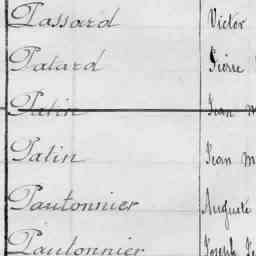 Passard Victor
Patard Pierre
Patin Jean M
Patin Jean M
Pautonnier Auguste
Pautonnier Joseph